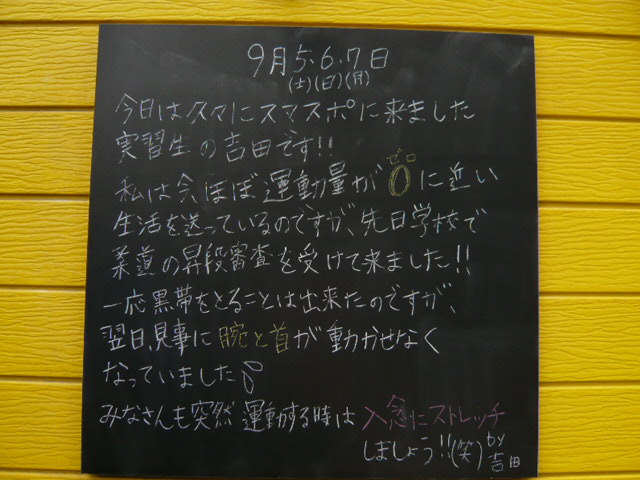 9月5.6.7日
(土)(日)(月)
今日は久々にスマスポに来ました
実習生の吉田です!!
ゼロ
私は今、ほぼ運動量が0に近い
生活を送っているのですが、先日学校で
柔道の昇段審査を受けて来ました!!
一応黒帯をとることは出来たのですが、
翌日、見事に腕と首が動かせなく
なっていました
みなさんも突然運動する時は入念にストレッチ
しましょう!!(笑)by
吉田